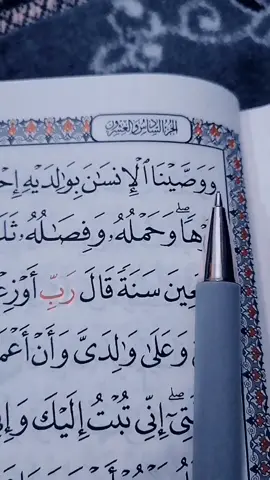 الجزء السادس والعشرون
وَوَصَّيْنَا ٱلْإِنسَٰنَ بِوَٰلِدَيْهِ إِحْ
هًاۖ وَحَمْلُهُۥ وَفِصَٰلُهُۥ ثَلَ
عِينَ سَنَةً قَالَ رَبِّ أَوْزِعْ
وَعَلَىٰ وَٰلِدَىَّ وَأَنْ أَعْمَ
تِىٓۖ إِنِّى تُبْتُ إِلَيْكَ وَإِ